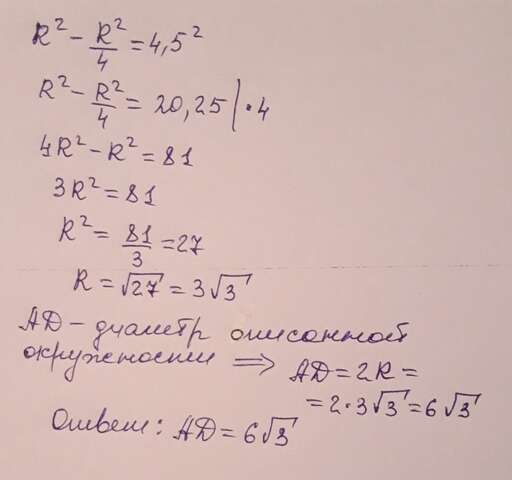 R² - R²/4 = 4,5²
R² - R²/4 = 20,25 | · 4
4R² - R² = 81
3R² = 81
R² = 81/3 = 27
R = √27 = 3√3
AD - диаметр описанной
окружности ⇒ AD = 2R =
= 2·3√3 = 6√3
Ответ: AD = 6√3